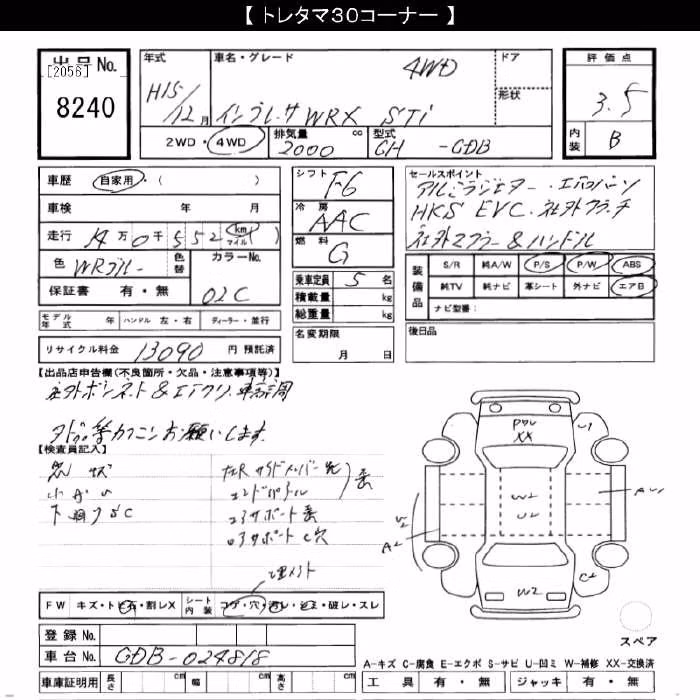 【 トレタマ３０コーナー 】
出品No. [2056] 8240
年式 H15/12月
車名・グレード インプレッサ WRX STi 4WD
ドア
形状
評価点 3.5
内装 B
2WD・4WD 排気量 2000 cc 型式 GH -GDB
車歴 自家用・( )
車検 年 月
走行 4万0千552 (km マイル)
色 WRブルー 色替 カラーNo. 02C
保証書 有・無
シフト F6
冷房 AAC
燃料 G
乗車定員 5 名
積載量 kg
総重量 kg
名変期限 月 日
セールスポイント
アルミラジエター・エアロパーツ
HKS EVC・社外クラッチ
社外マフラー&ハンドル
装備品 S/R 純A/W P/S P/W ABS
純TV 純ナビ 革シート 外ナビ エアB
ナビ型番：
後日品
モデル年式 年 ハンドル 左・右 ディーラー・並行
リサイクル料金 13090 円 預託済
【出品店申告欄(不良箇所・欠品・注意事項等)】
社外ボンネット&エアクリ 車高調
タトゥ等カクニンお願いします
【検査員記入】
キズ
小
下 C
R サイドメンバー先
エンドパネル
コアサポート
コアサポート C穴
FW キズ・トビ石・割レX シート内装 コゲ・穴・汚レ・シミ・破レ・スレ
PWW
XX
U1
W2
U2
A2
C2
W2
スペア
登録No.
車台No. GDB-024818
車庫証明用 長さ cm 幅 cm 高さ cm
A-キズ C-腐食 E-エクボ S-サビ U-凹ミ W-補修 XX-交換済
工具 有・無 ジャッキ 有・無